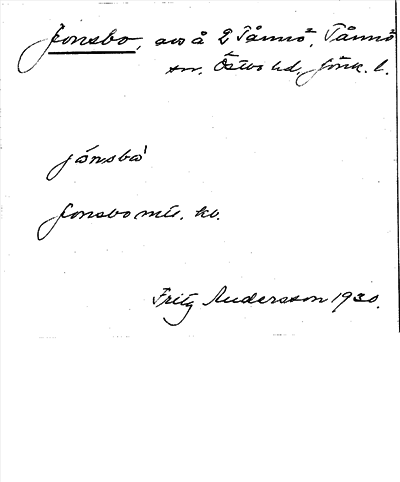 Jonsbo, avs å 2 Tånnö, Tånnö
sn. Östbo hd, Jönk. l.
jónsbó
Jonsbo mtl. kb.
Fritz Andersson 1930.